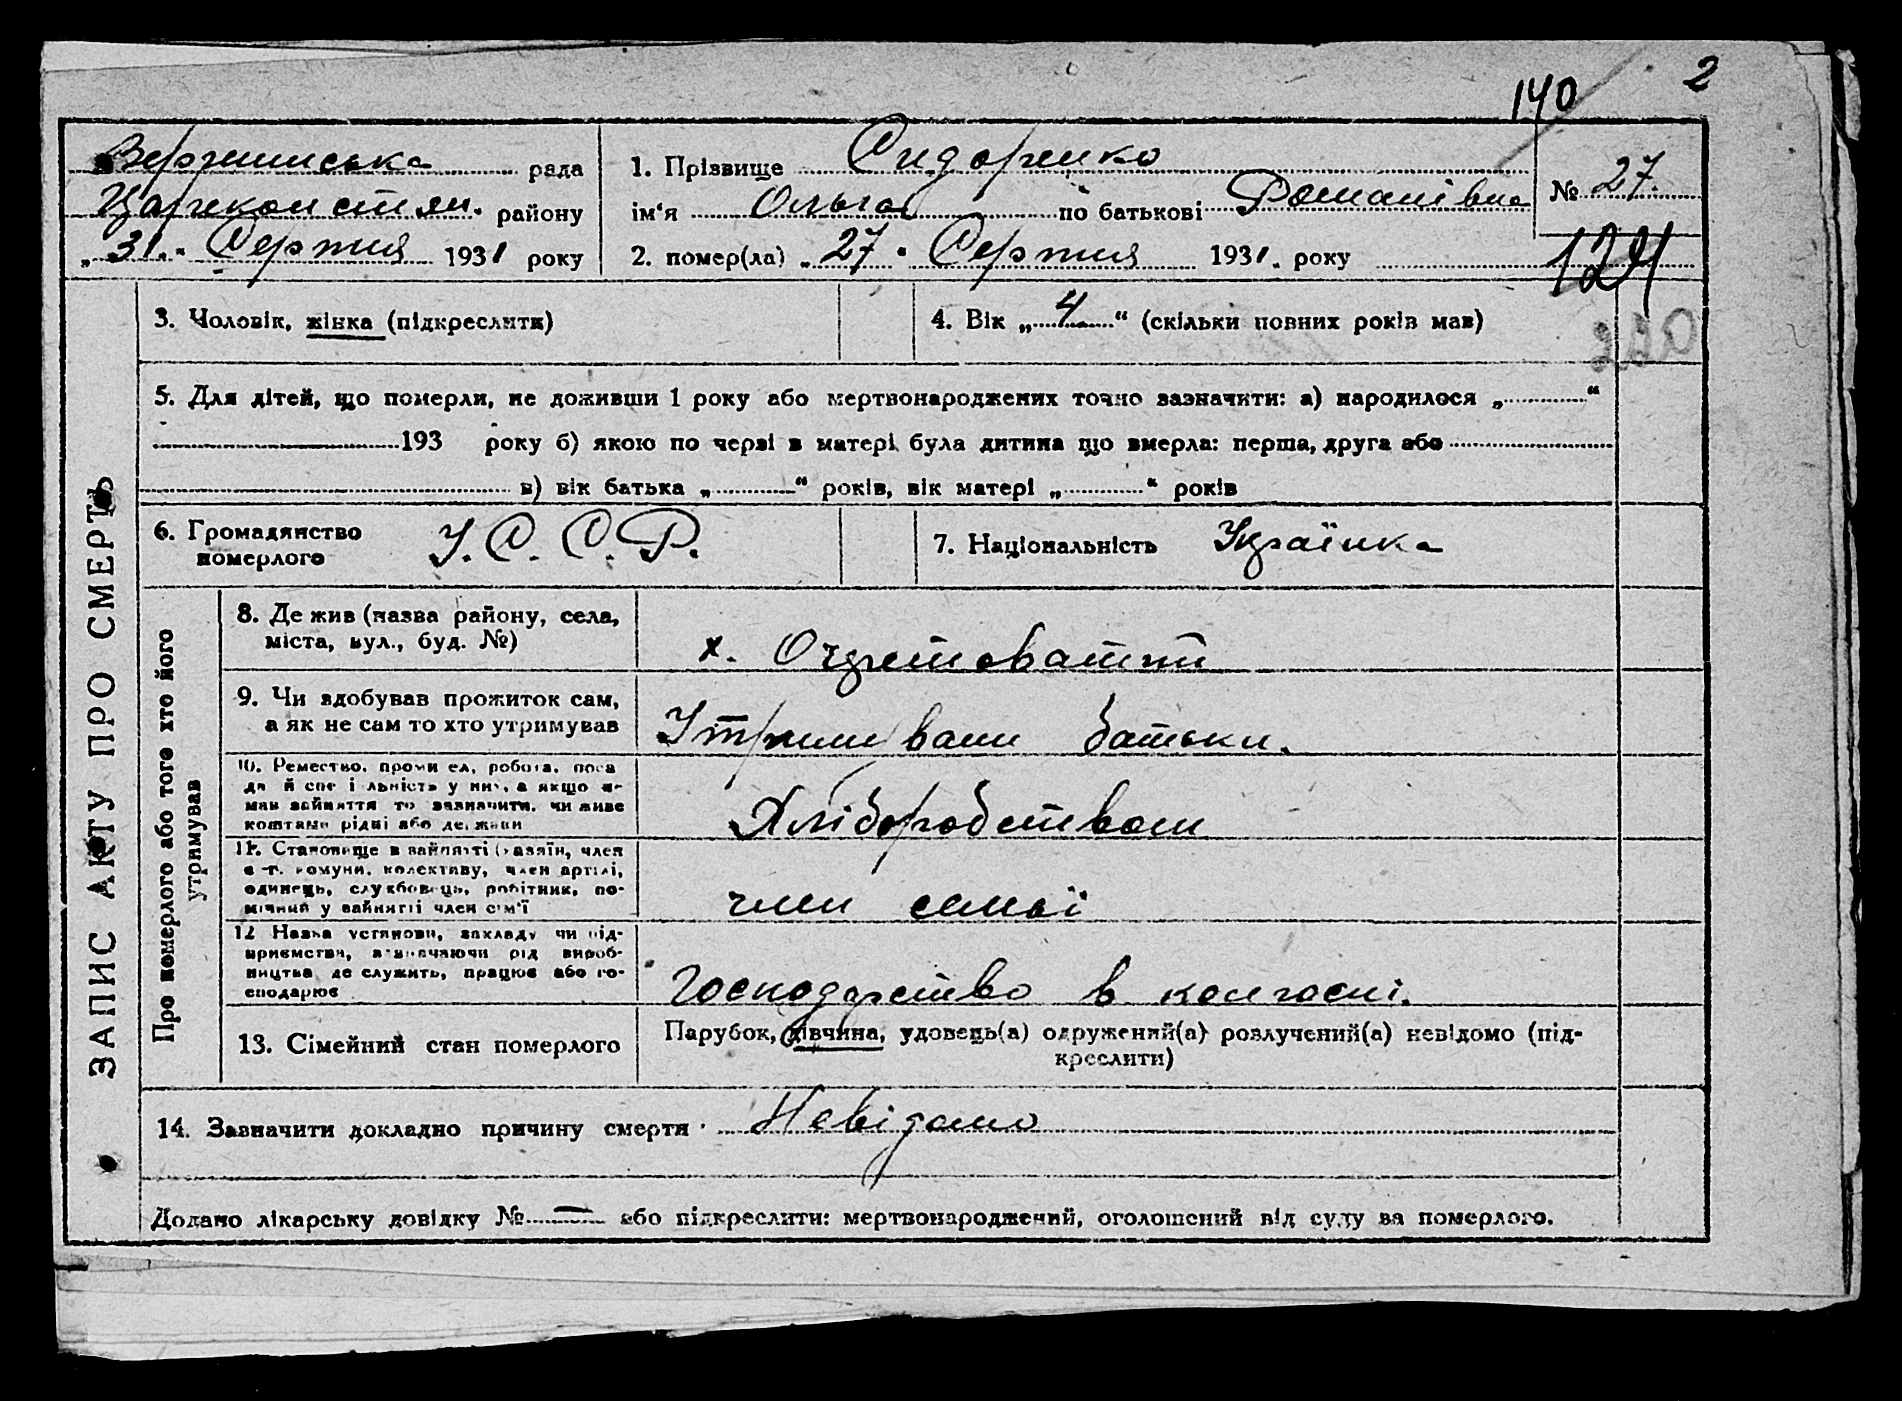 140 2
рада
1. Прізвище Сидоренко
№ 27.
Царекостян. району
ім‘я Ольга по батькові Романівна
„ 31. “ Серпня 1931 року
2. помер(ла) „ 27 “ Серпня 1931. року
124
3. Чоловік, жінка (підкреслити)
4. Вік „ 4 “ (скільки повних років мав)
5. Для дітей, що померли, не доживши 1 року або мертвонароджених точно зазначити: а) народилося „ “
193 року б) якою по черзі в матері була дитина що вмерла: перша, друга або
в) вік батька „ “ років, вік матері „ “ років
6. Громадянство
померлого
У. С. С. Р.
7. Національність Українка
ЗАПИС АКТУ ПРО СМЕРТЬ
Про померлого або того хто його
утримував
8. Де жив (назва району, села,
міста, вул., буд. №)
х. Очеретоватий
9. Чи здобував прожиток сам,
а як не сам то хто утримував
Утримували батьки.
10. Ремество, промисел, робота, поса
да й спеціальність у них, а якщо не
мав зайняття то зазначити, чи живе
коштами рідні або держави
Хліборобством
11. Становище в зайнятті (хазяїн, член
с-г. комуни, колективу, член артілі,
одинець, службовець, робітник, по-
мічний у зайнятті член сім‘ї
член семьї
12 Назва установи, закладу чи під-
приємства, зазначаючи рід вироб-
ництва де служить, працює або го-
сподарює
Господарство в колгоспі.
13. Сімейний стан померлого
Парубок, дівчина, удовець(а) одружений(а) розлучений(а) невідомо (під-
креслити)
14. Зазначити докладно причину смерти Невідомо
Додано лікарську довідку № — або підкреслити: мертвонароджений, оголошений від суду за померлого.